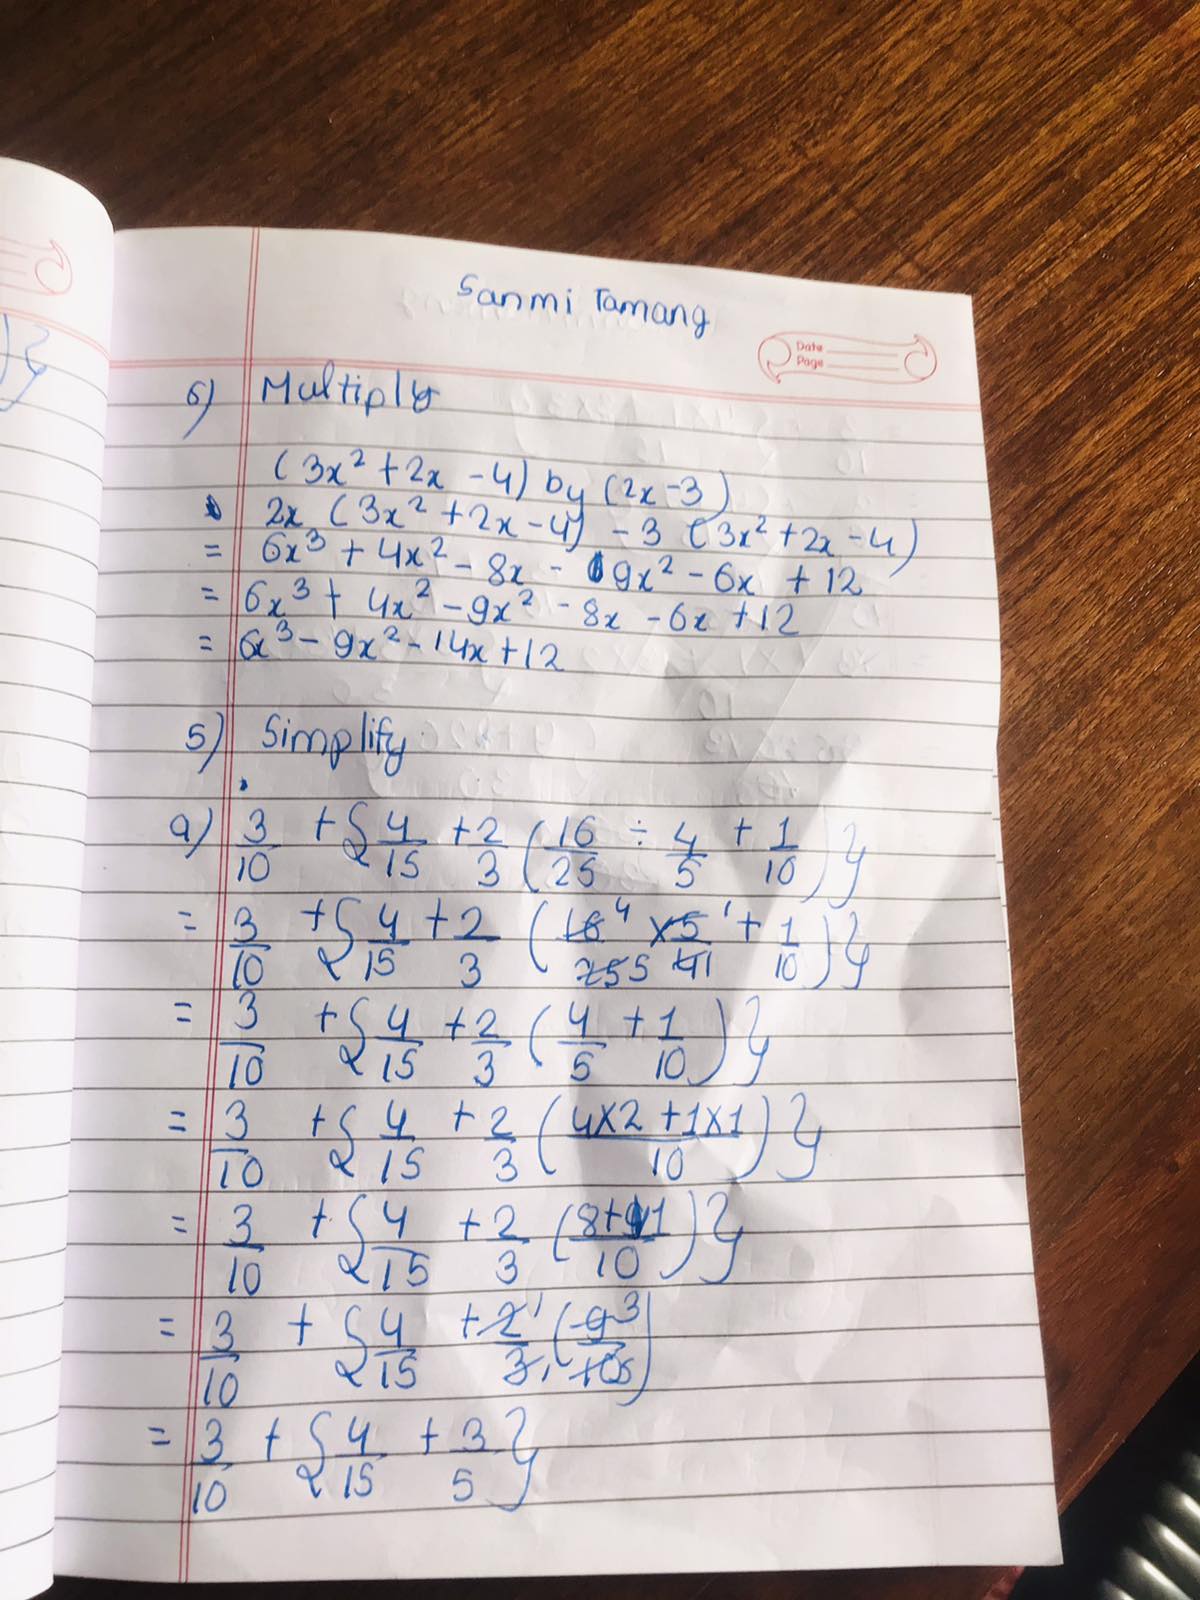 Sanmi Tamang
Date
Page
6) Multiply
(3x² + 2x - 4) by (2x - 3)
2x (3x² + 2x - 4) - 3 (3x² + 2x - 4)
= 6x³ + 4x² - 8x - 9x² - 6x + 12
= 6x³ + 4x² - 9x² - 8x - 6x + 12
= 6x³ - 9x² - 14x + 12
5) Simplify
a) 3/10 + {4/15 + 2/3 (16/25 ÷ 4/5 + 1/10)}
= 3/10 + {4/15 + 2/3 (16 4/25 5 × 5 1/4 1 + 1/10)}
= 3/10 + {4/15 + 2/3 (4/5 + 1/10)}
= 3/10 + {4/15 + 2/3 (4×2 + 1×1/10)}
= 3/10 + {4/15 + 2/3 (8+1/10)}
= 3/10 + {4/15 + 2 1/3 1 (9 3/10 5)
= 3/10 + {4/15 + 3/5}